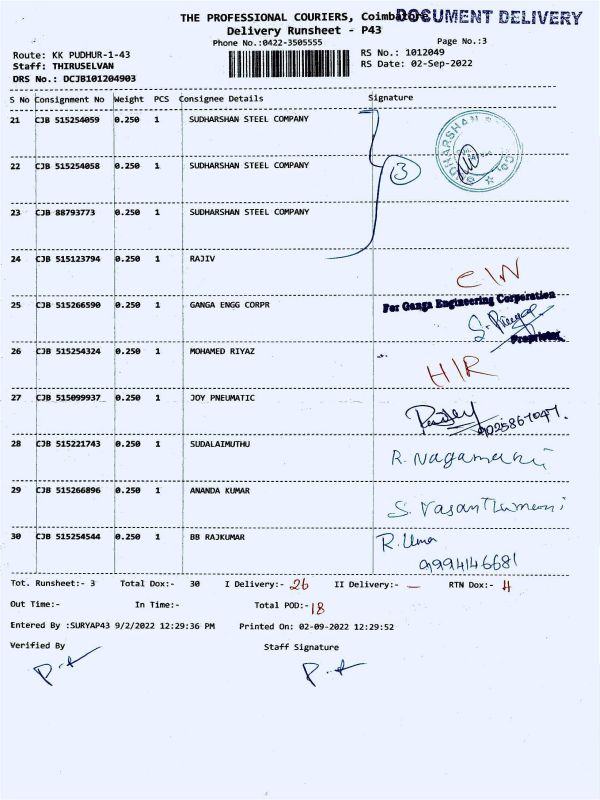 THE PROFESSIONAL COURIERS, Coimbatore
DOCUMENT DELIVERY
Delivery Runsheet - P43
Phone No.:0422-3505555
Page No.:3
Route: KK PUDHUR-1-43
RS No.: 1012049
Staff: THIRUSELVAN
RS Date: 02-Sep-2022
DRS No.: DCJB101204903
S No Consignment No Weight PCS Consignee Details Signature
21 CJB 515254059 0.250 1 SUDHARSHAN STEEL COMPANY
22 CJB 515254058 0.250 1 SUDHARSHAN STEEL COMPANY
3
23 CJB 88793773 0.250 1 SUDHARSHAN STEEL COMPANY
24 CJB 515123794 0.250 1 RAJIV
C/N
25 CJB 515266590 0.250 1 GANGA ENGG CORPR
For Ganga Engineering Corporation
Proprietor
26 CJB 515254324 0.250 1 MOHAMED RIYAZ
H/R
27 CJB 515099937 0.250 1 JOY PNEUMATIC
28 CJB 515221743 0.250 1 SUDALAIMUTHU
R. Nagamani
29 CJB 515266896 0.250 1 ANANDA KUMAR
S. Vasanthamani
30 CJB 515254544 0.250 1 BB RAJKUMAR
R. Uma
9994146681
Tot. Runsheet:- 3 Total Dox:- 30 I Delivery:- 26 II Delivery:- — RTN Dox:- 4
Out Time:- In Time:- Total POD:- 18
Entered By :SURYAP43 9/2/2022 12:29:36 PM Printed On: 02-09-2022 12:29:52
Verified By Staff Signature